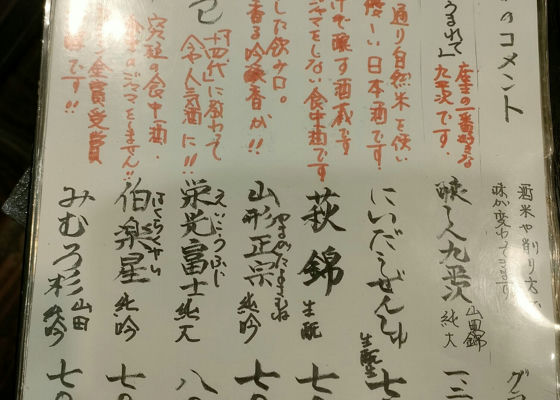 のコメント
酒米や削り
味が変わってきます
グ
うまれて」
座の一番好きな
九平次です。
醸し人九平次
山田錦
純大
一三
通り自然米を使い
優しい日本酒です
にいだしぜんしゅ
生酛
七
けで醸す酒蔵です
ジャマをしない食中酒です
萩錦
生酛
七〇
した飲み口。
香る吟醸香が!!
山形正宗
やまがたまさむね
純吟
七〇
「十四代」に教わって
今人気酒に!!
栄光富士
えいこうふじ
純大
八
究極の食中酒。
食事のジャマをしません!!
伯楽星
はくらくせい
純吟
七〇
金賞受賞
です!!
みむろ杉
山田
純吟
七〇